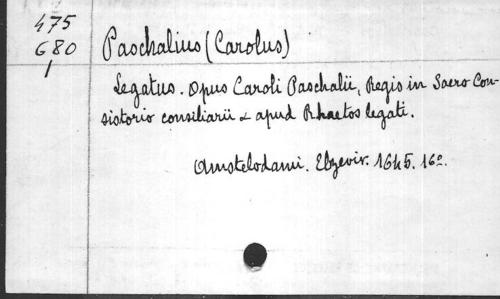 475
680
1
Paschalius (Carolus)
Legatus. Opus Caroli Paschalii, Regis in Sacro Con-
sistorio consiliarii & apud Rhaetos legati.
Amstelodami. Elzevir. 1645. 16º.